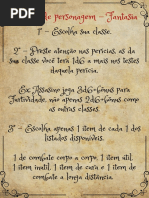 de personagem - Fantasia
1º - Escolha sua classe.
2º - Preste atenção nas perícias, as da
sua classe você terá 1d6 a mais nos testes
daquela perícia.
Ex: Assassino joga 3d6+bônus para
Furtividade, não apenas 2d6+bônus como
as outras classes.
3º - Escolha apenas 1 item de cada 1 dos
listados disponíveis.
1 de combate corpo a corpo, 1 item útil,
1 item inútil, 1 item de cura, 1 item de
combate a longa distância.